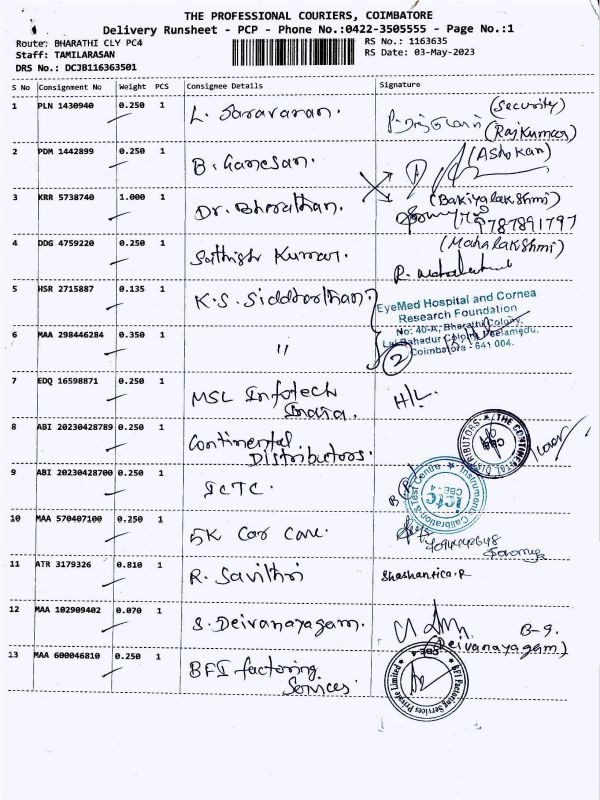 THE PROFESSIONAL COURIERS, COIMBATORE
Delivery Runsheet - PCP - Phone No.:0422-3505555 - Page No.:1
Route: BHARATHI CLY PC4
Staff: TAMILARASAN
DRS No.: DCJB116363501
RS No.: 1163635
RS Date: 03-May-2023
S No Consignment No Weight PCS Consignee Details Signature
1 PLN 1430940 0.250 1 L. Saravanan. (Security)
(Rajkumar)
2 PDM 1442899 0.250 1 B. Ganesan. (Ashokan)
3 KRR 5738740 1.000 1 Dr. Bharathan. (Bakiyalakshmi)
9787891797
4 DDG 4759220 0.250 1 Sathish Kumar. (Mahalakshmi)
5 HSR 2715887 0.135 1 K.S. Siddharthan.
EyeMed Hospital and Cornea
Research Foundation
No: 40-A, Bharathi Colony,
Lal Bahadur Colony, Peelamedu,
Coimbatore - 641 004.
6 MAA 298446284 0.350 1 "
2
7 EDQ 16598871 0.250 1 MSL Infotech
India. H/L.
8 ABI 20230428789 0.250 1 Continental
Distributors.
THE CONTINENTAL DISTRIBUTORS
CBE
9 ABI 20230428700 0.250 1 ICTC.
Instruments Calibration & Test Centre
ictc
CBE-4
10 MAA 570407100 0.250 1 5K Car Care.
11 ATR 3179326 0.810 1 R. Savithri Shashantica.R
12 MAA 102909402 0.070 1 S. Deivanayagam. B-9.
(Deivanayagam)
13 MAA 600046810 0.250 1 BFI factoring
Services
BFI Factoring Services Private Limited
CBE-4